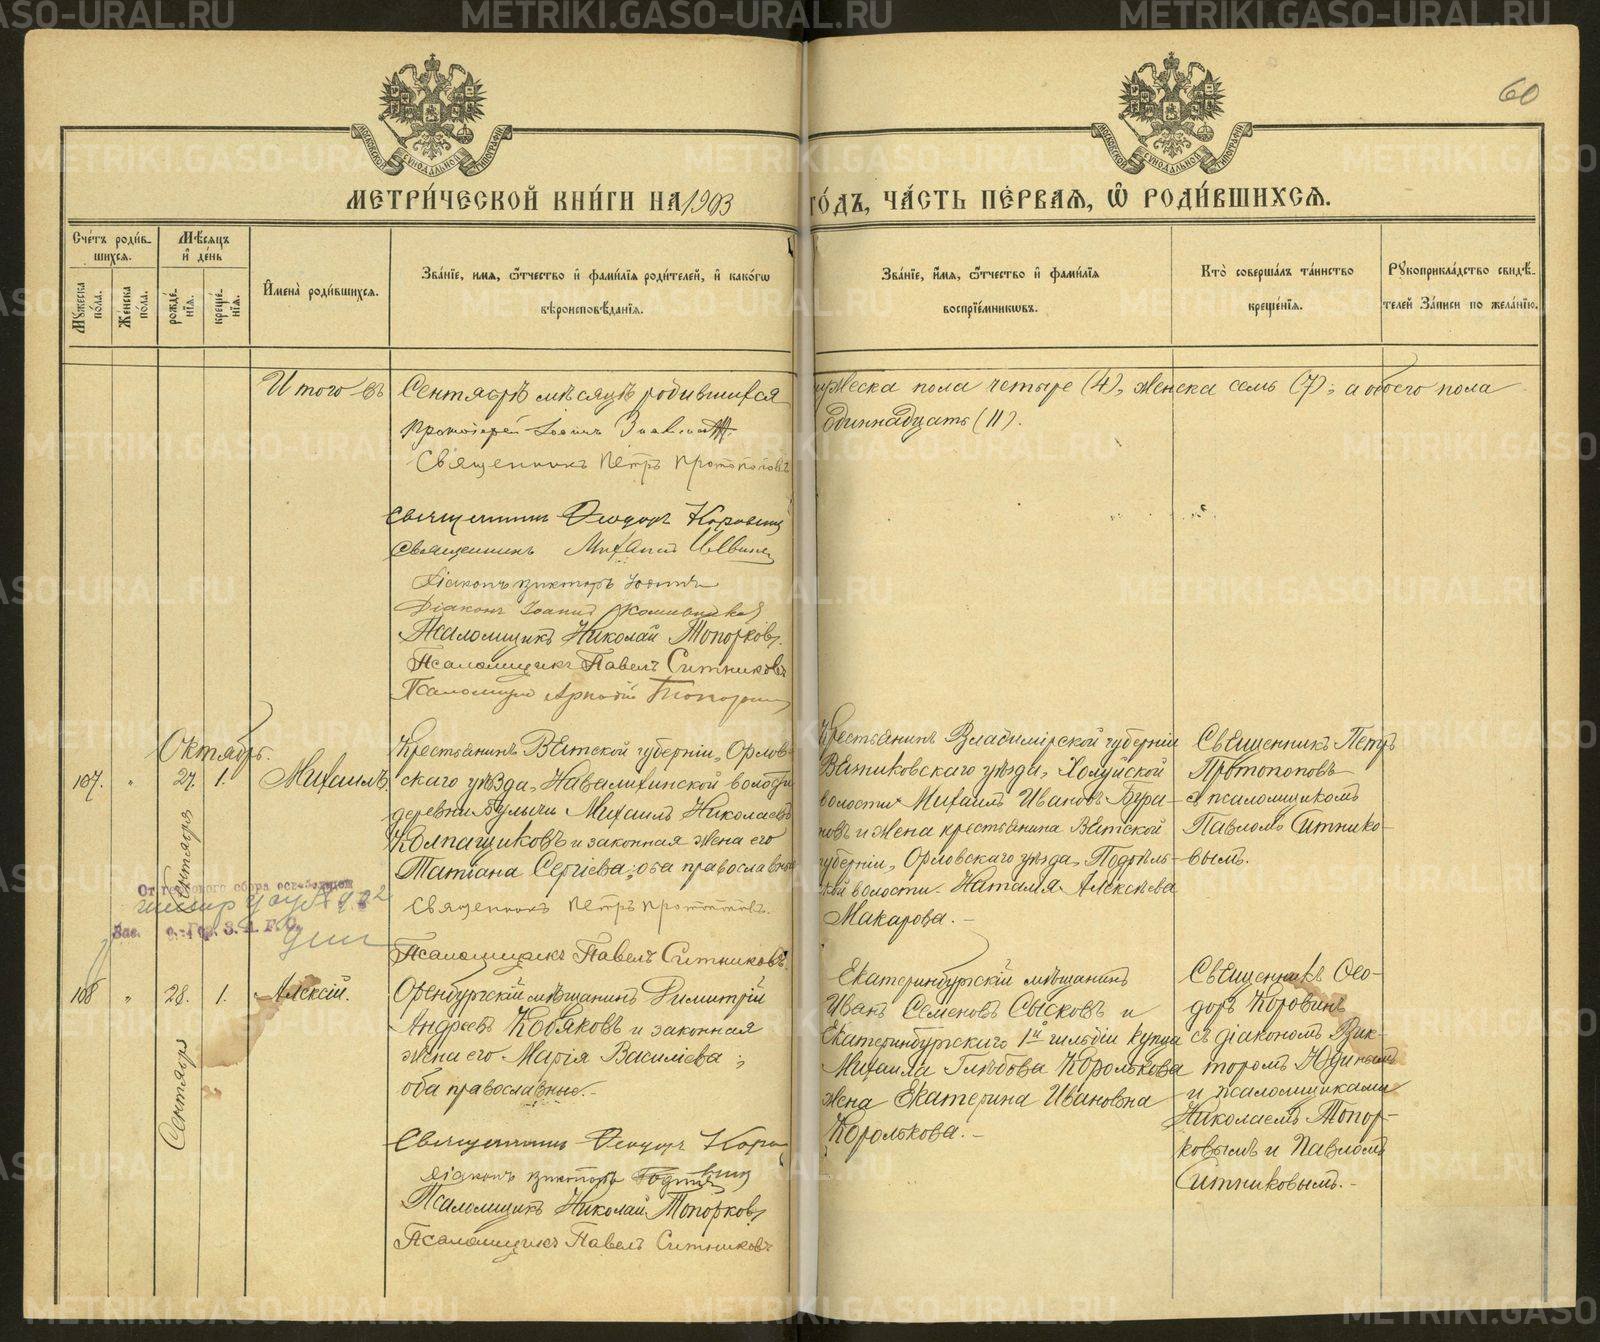 60
МОСКОВСКОЙ СУНОДАЛЬНОЙ ТИПОГРАФІИ
МОСКОВСКОЙ СУНОДАЛЬНОЙ ТИПОГРАФІИ
МЕТРИ́ЧЕСКОЙ КНИ́ГИ НА 1903 ГО́ДЪ, ЧА́СТЬ ПЕ́РВАЯ, Ѽ РОДИ́ВШИХСЯ.
Сче́тъ роди́вшихся.
Мꙋжеска по́ла.
Же́нска по́ла.
Мѣ́сяцъ и҆ де́нь
рожде́нїя.
креще́нїя.
И҆мена̀ роди́вшихся.
Зва́нїе, имя, ѻ҆́тчество и҆ фами́лїя роди́телей, и҆ како́гѡ
вѣроисповѣ́данїя.
Зва́нїе, и҆́мя, ѻ҆́тчество и҆ фами́лїя
воспрїе́мниковъ.
Кто̀ соверша́лъ та́инство
креще́нїя.
Рꙋкоприкла́дство свидѣ́телей За́писи по жела́нїю.
Итого въ Сентябрѣ мѣсяцѣ родившихся мужеска пола четыре (4), женска семь (7), а обоего пола
одиннадцать (11).
Протоіерей Іоаннъ
Священникъ Петръ Протопоповъ
Священникъ Ѳеодоръ Коровинъ
Священникъ Михаилъ
Діаконъ Викторъ Юдинъ
Діаконъ Іоаннъ
Псаломщикъ Николай Топорковъ
Псаломщикъ Павелъ Ситниковъ
Псаломщикъ Аркадій
Октябрь.
107. " 27. Сентября 1. Михаилъ.
Крестьянинъ Вятской губерніи, Орлов-
скаго уѣзда, Навалихинской волости
деревни Булычи Михаилъ Николаевъ
Колпащиковъ и законная жена его
Татіана Сергіева; оба православные
Священникъ Петръ Протопоповъ.
Псаломщикъ Павелъ Ситниковъ.
Крестьянинъ Владимірской губерніи
Вязниковскаго уѣзда, Холуйской
волости Михаилъ Ивановъ Бура-
новъ и жена крестьянина Вятской
губерніи, Орловскаго уѣзда,
волости Наталія Алексѣева
Макарова.-
Священникъ Петръ
Протопоповъ
съ псаломщикомъ
Павломъ Ситнико-
вымъ.
От гербового сбора освобождено
108 " 28. Сентября 1. Алексій.
Оренбургскій мѣщанинъ Димитрій
Андреевъ Кобяковъ и законная
жена его Марія Василіева;
оба православные.-
Священникъ Ѳеодоръ Коровинъ
Діаконъ Викторъ Юдинъ
Псаломщикъ Николай Топорковъ
Псаломщикъ Павелъ Ситниковъ
Екатеринбургскій мѣщанинъ
Иванъ Семеновъ Сысковъ и
Екатеринбургскаго 1й гильдіи купца
Михаила Глѣбова Королькова
жена Екатерина Ивановна
Королькова.-
Священникъ Ѳео-
доръ Коровинъ
съ діакономъ Вик-
торомъ Юдинымъ
и псаломщиками
Николаемъ Топор-
ковымъ и Павломъ
Ситниковымъ.-
METRIKI.GASO-URAL.RU